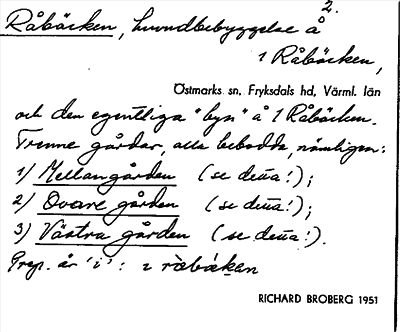 2.
Råbäcken, huvudbebyggelse å
1 Råbäcken,
Östmarks sn, Fryksdals hd, Värml. län
och den egentliga "byn" å 1 Råbäcken.
Trenne gårdar, alla bebodda, nämligen:
1) Mellangården (se detta!);
2) Ovare gården (se detta!);
3) Västra gården (se detta!).
Prep. är 'i':
RICHARD BROBERG 1951